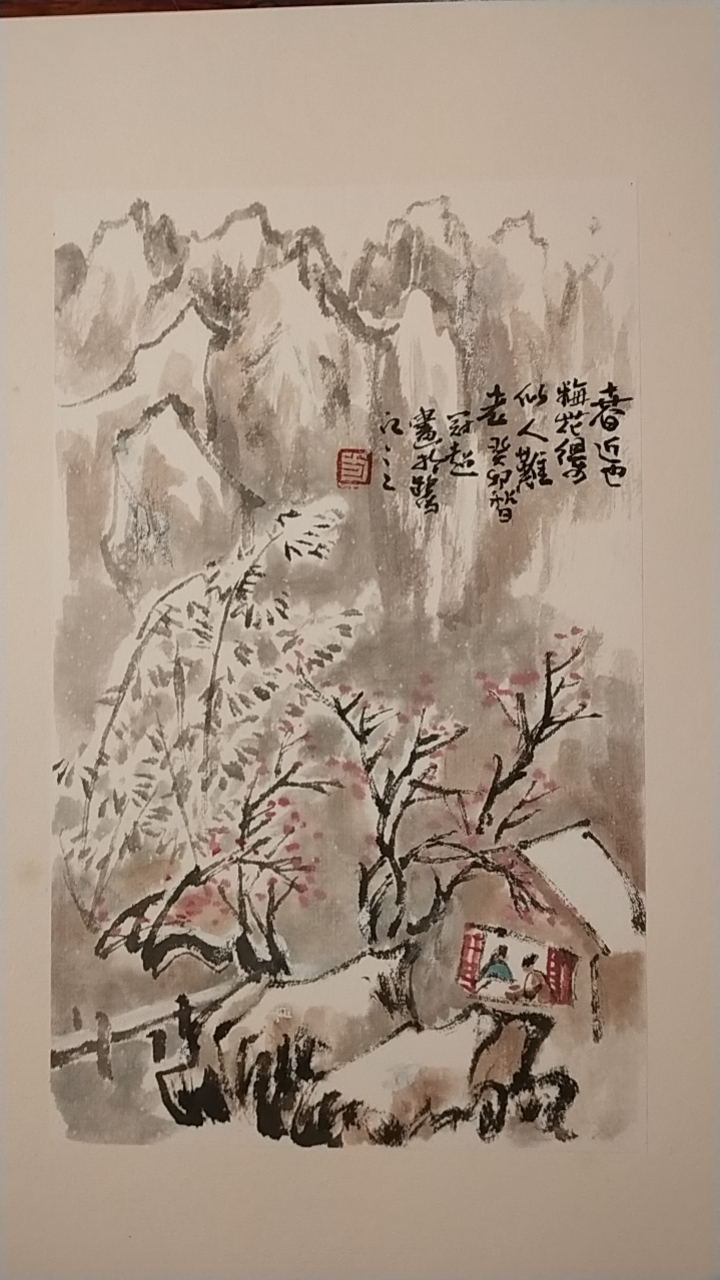 春近也
梅花得
似人難
老癸卯智
冠超
畫於鷺
江